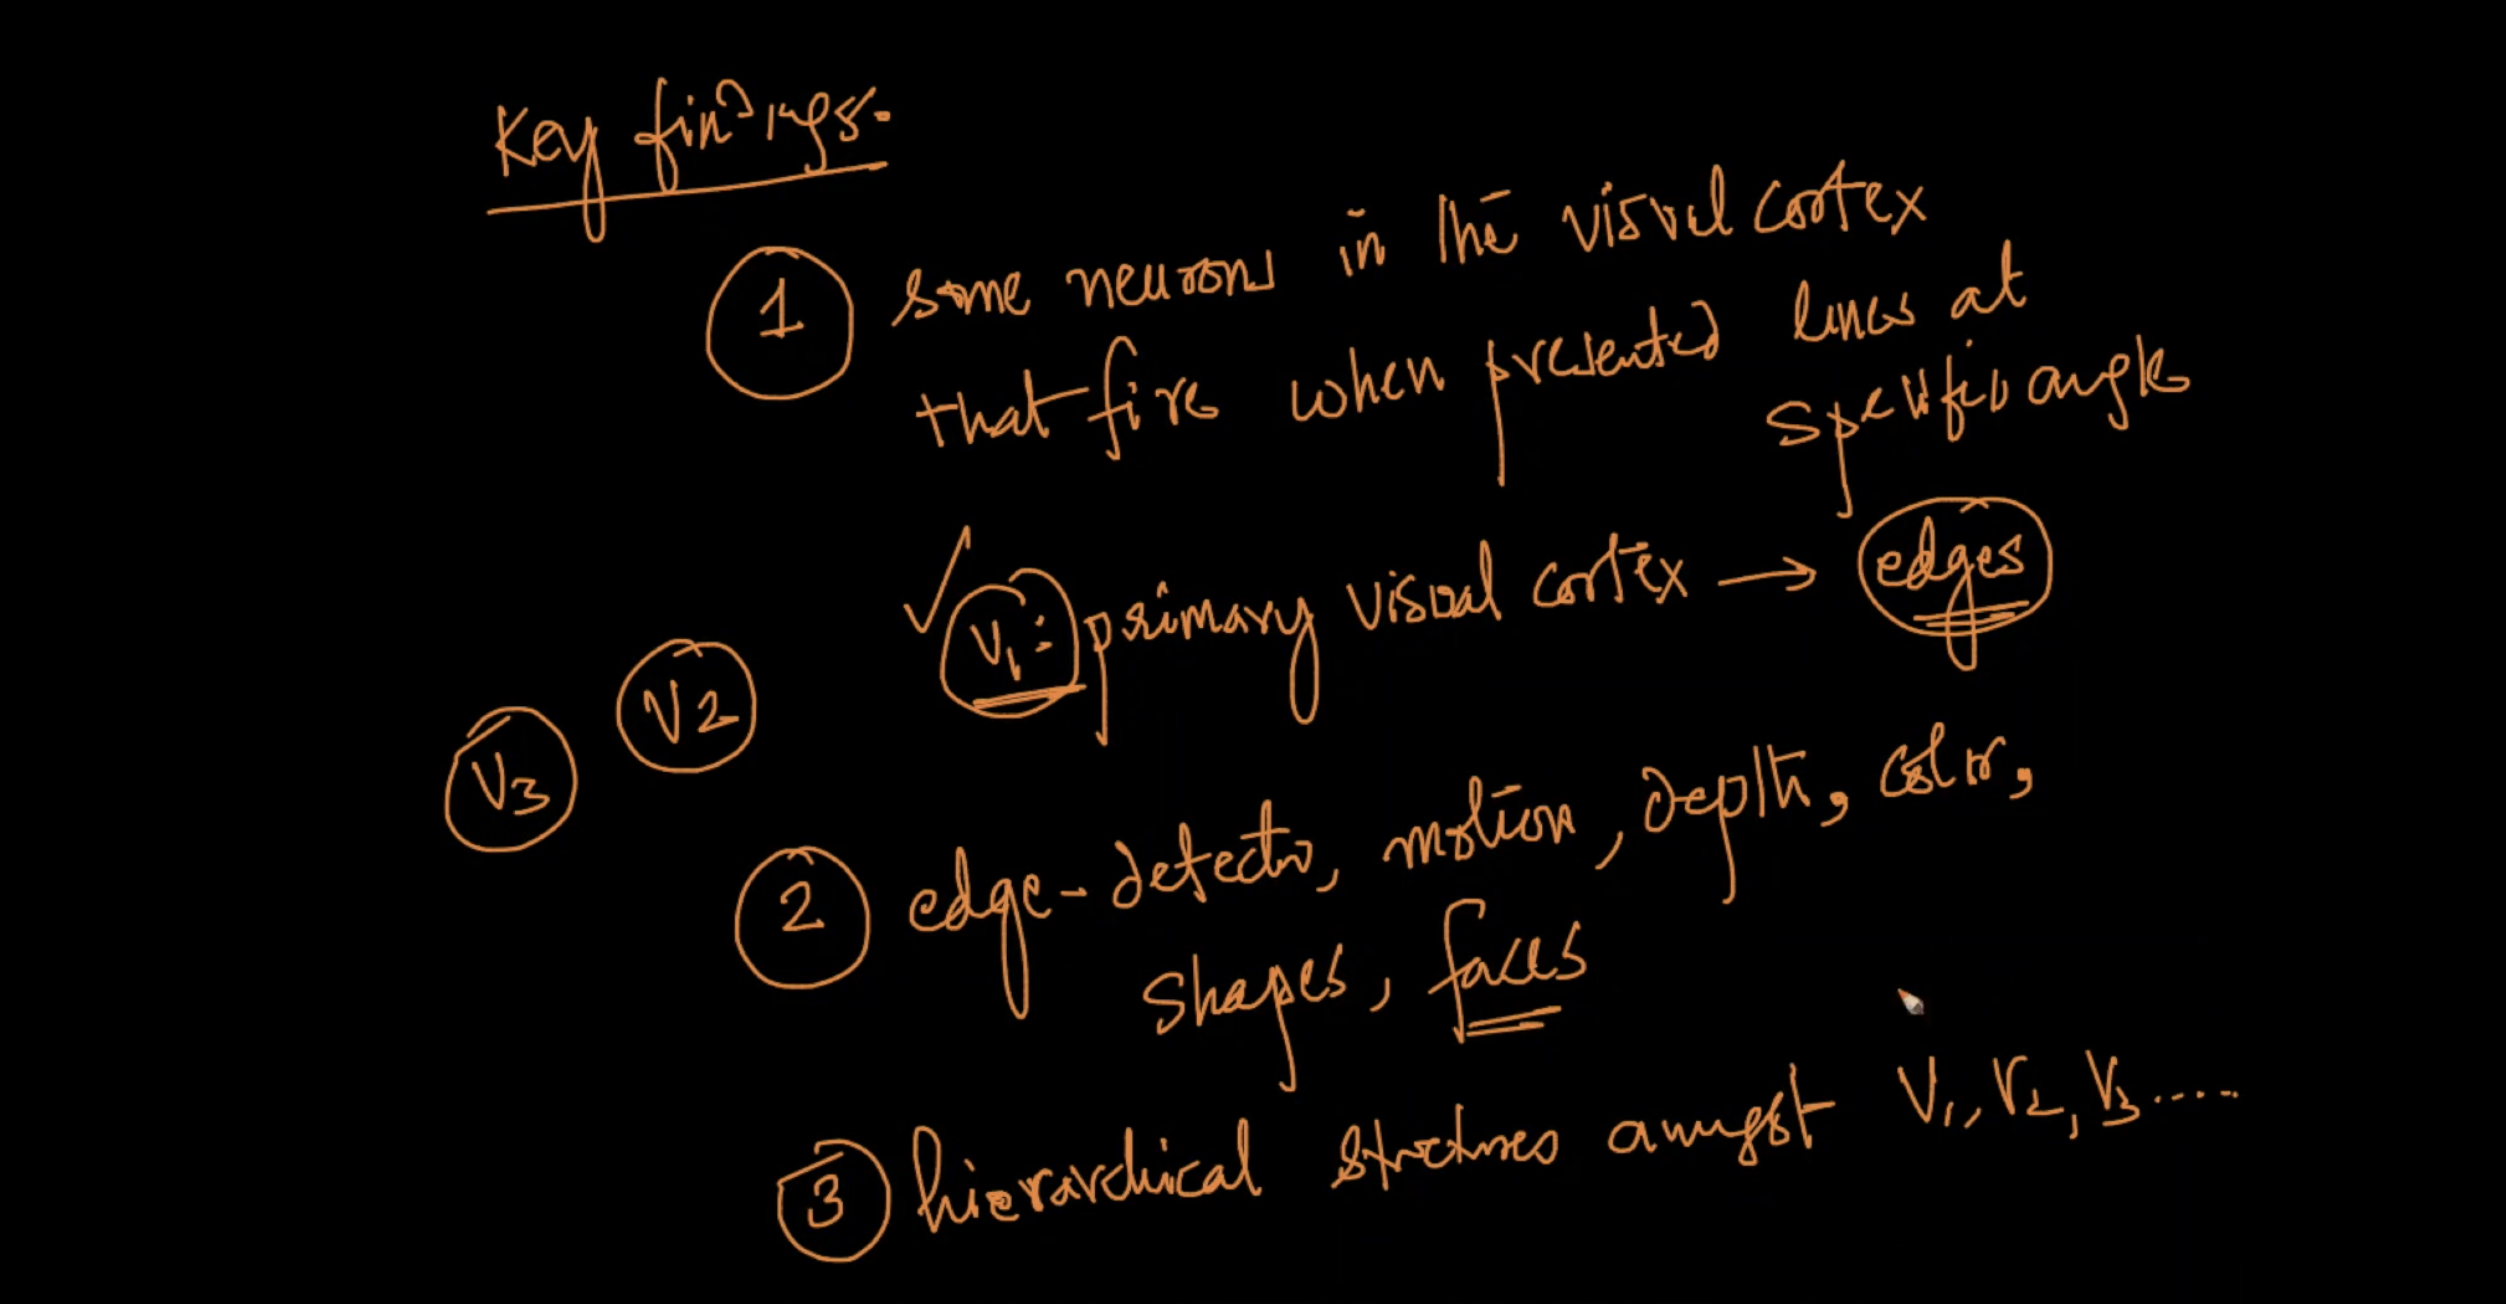 Key findings.
1 some neurons in the visual cortex
that fire when presented lines at
specific angle
V1: primary visual cortex → edges
V2
V3
2 edge-detector, motion, depth, color,
shapes, faces
3 hierarchical structures amongst V1, V2, V3.....